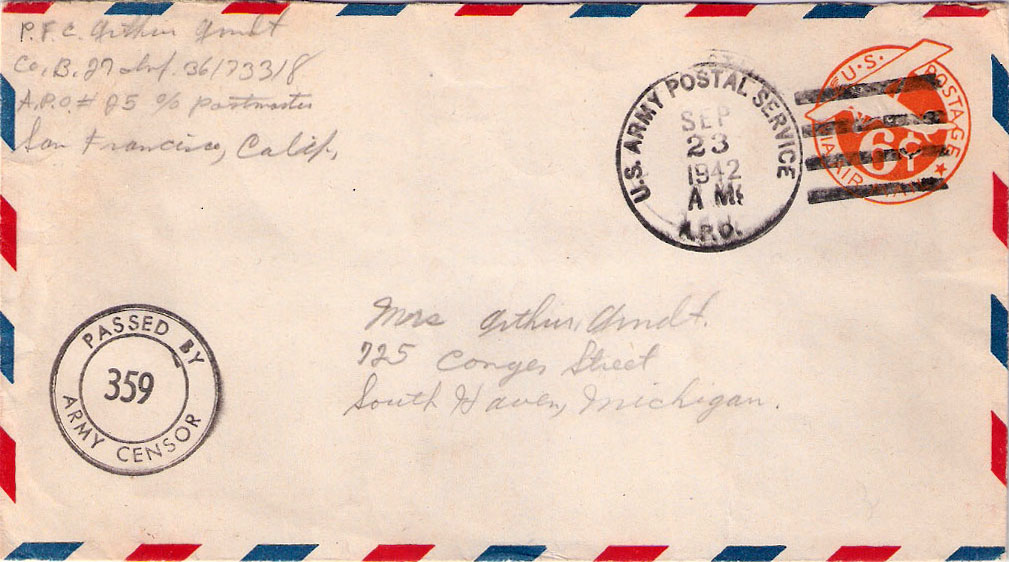 P.F.C. Arthur Arndt
Co, B. 27 Inf. 36173318
A.P.O # 25 c/o Postmaster
San Francisco, Calif,
U.S. ARMY POSTAL SERVICE
SEP
23
1942
A M
A.P.O.
U.S. POSTAGE
6¢
VIA AIR MAIL
PASSED BY
359
ARMY CENSOR
Mrs Arthur Arndt.
725 Conger Street
South Haven, Michigan.